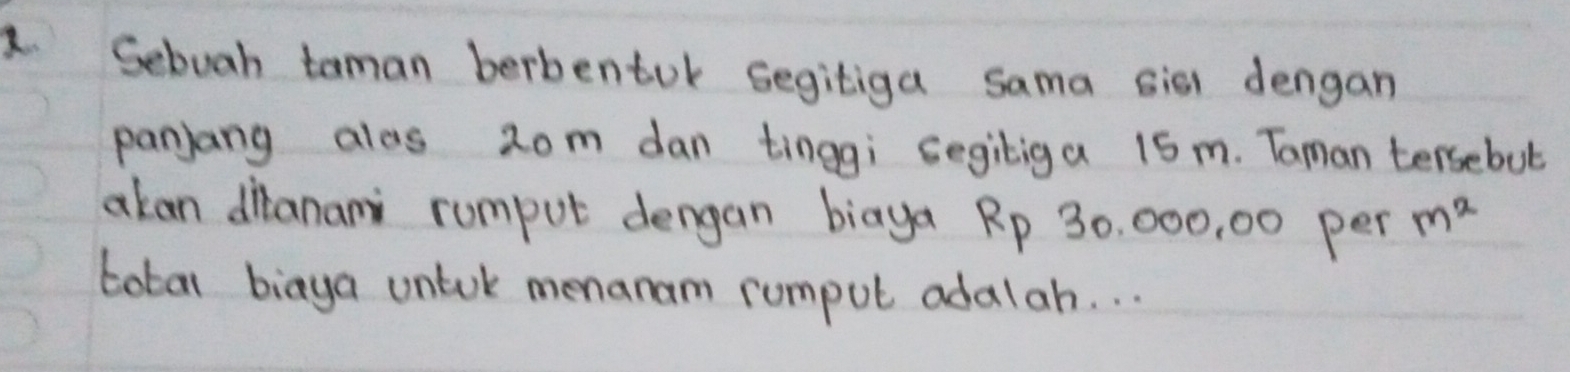 2. Sebuah taman berbentuk segitiga sama sisi dengan
panjang alas 20 m dan tinggi segitiga 15 m. Taman tersebut
akan ditanami rumput dengan biaya Rp 30.000,00 per m²
total biaya untuk menanam rumput adalah...